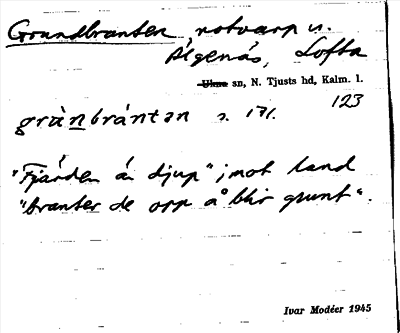 Grundbranten, notvarp u.
Älgenäs, Lofta
Ukna sn, N. Tjusts hd, Kalm. l.
123
grùnbràntən s. 171.
"Fjärden än djup"; mot land
"branter de opp å blir grunt".
Ivar Modéer 1945